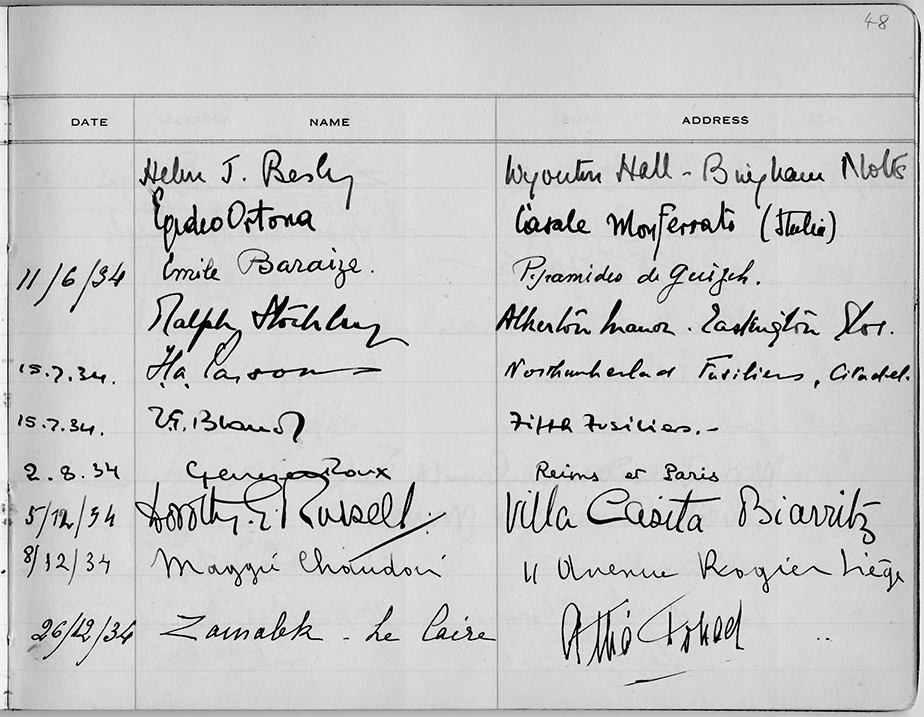 48
DATE NAME ADDRESS
Helen J. Besly Wyverton Hall - Bingham Notts
Egidio Ortona Casale Monferrato (Italia)
11/6/34 Emile Baraize. Pyramides de Guizeh.
Ralph Atherton Manor. Eastington Glos.
15.7.34. H.A. Parsons Northumberland Fusiliers, Citadel.
15.7.34. Fifth Fusiliers.-
2.8.34 Roux Reims et Paris
5/12/34 Dorothy E. Russell. Villa Casita Biarritz
8/12/34 Maggie Chaudoir 11 Avenue Rogier Liège
26/12/34 Zamalek - Le Caire